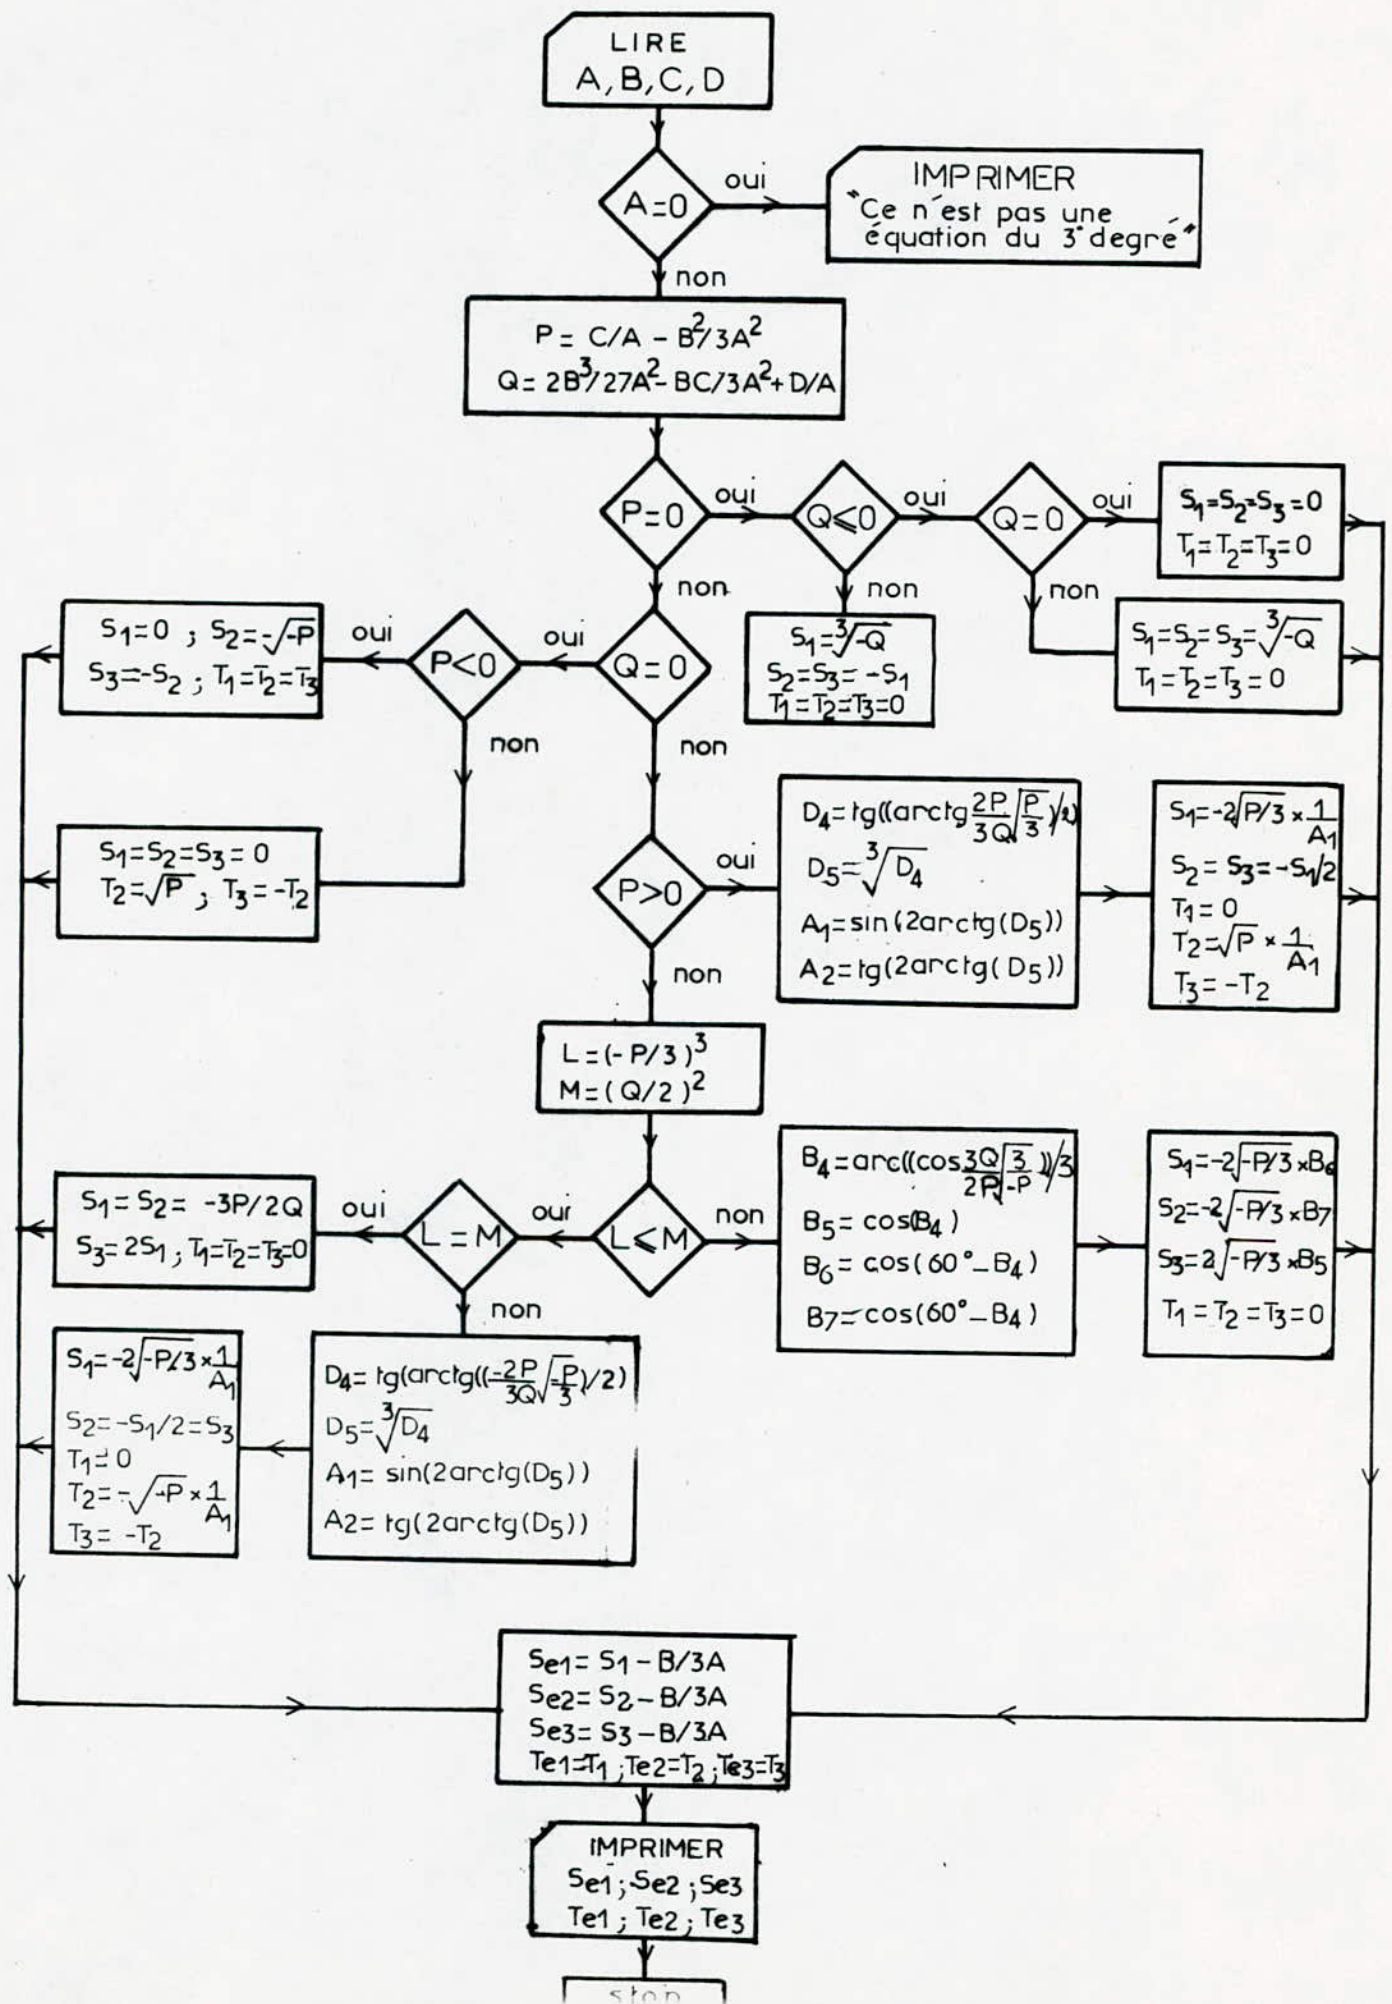 LIRE
A, B, C, D
A=0
oui
IMPRIMER
"Ce n'est pas une
équation du 3° degré"
non
P= C/A - B²/3A²
Q= 2B³/27A² - BC/3A² + D/A
P=0
oui
Q⩽0
oui
Q=0
oui
S₁=S₂=S₃=0
T₁=T₂=T₃=0
non
non
non
S₁=∛-Q
S₂=S₃= -S₁
T₁=T₂=T₃=0
S₁=S₂=S₃=∛-Q
T₁=T₂=T₃=0
S₁=0 ; S₂=-√-P
S₃=-S₂ ; T₁=T₂=T₃
oui
P<0
oui
Q=0
non
non
S₁=S₂=S₃=0
T₂=√P ; T₃=-T₂
P>0
oui
D₄=tg((arctg 2P/3Q √P/3)/2)
D₅=∛D₄
A₁=sin(2arctg(D₅))
A₂=tg(2arctg(D₅))
S₁=-2√P/3 × 1/A₁
S₂= S₃=-S₁/2
T₁=0
T₂=√P × 1/A₁
T₃= -T₂
non
L=(-P/3)³
M=(Q/2)²
S₁= S₂= -3P/2Q
S₃=2S₁ ; T₁=T₂=T₃=0
oui
L=M
oui
L⩽M
non
B₄=arc((cos 3Q/2P √3/-P))/3
B₅= cos(B₄)
B₆= cos(60°-B₄)
B₇=cos(60°-B₄)
S₁=-2√-P/3 ×B₆
S₂=-2√-P/3 ×B₇
S₃=2√-P/3 ×B₅
T₁= T₂= T₃=0
non
S₁=-2√-P/3 × 1/A₁
S₂= -S₁/2 = S₃
T₁=0
T₂=-√-P × 1/A₁
T₃= -T₂
D₄= tg(arctg((-2P/3Q √-P/3)/2)
D₅=∛D₄
A₁= sin(2arctg(D₅))
A₂= tg(2arctg(D₅))
Se1= S₁ - B/3A
Se2= S₂ - B/3A
Se3= S₃ - B/3A
Te1=T₁ ; Te2=T₂ ; Te3=T₃
IMPRIMER
Se1 ; Se2 ; Se3
Te1 ; Te2 ; Te3
stop